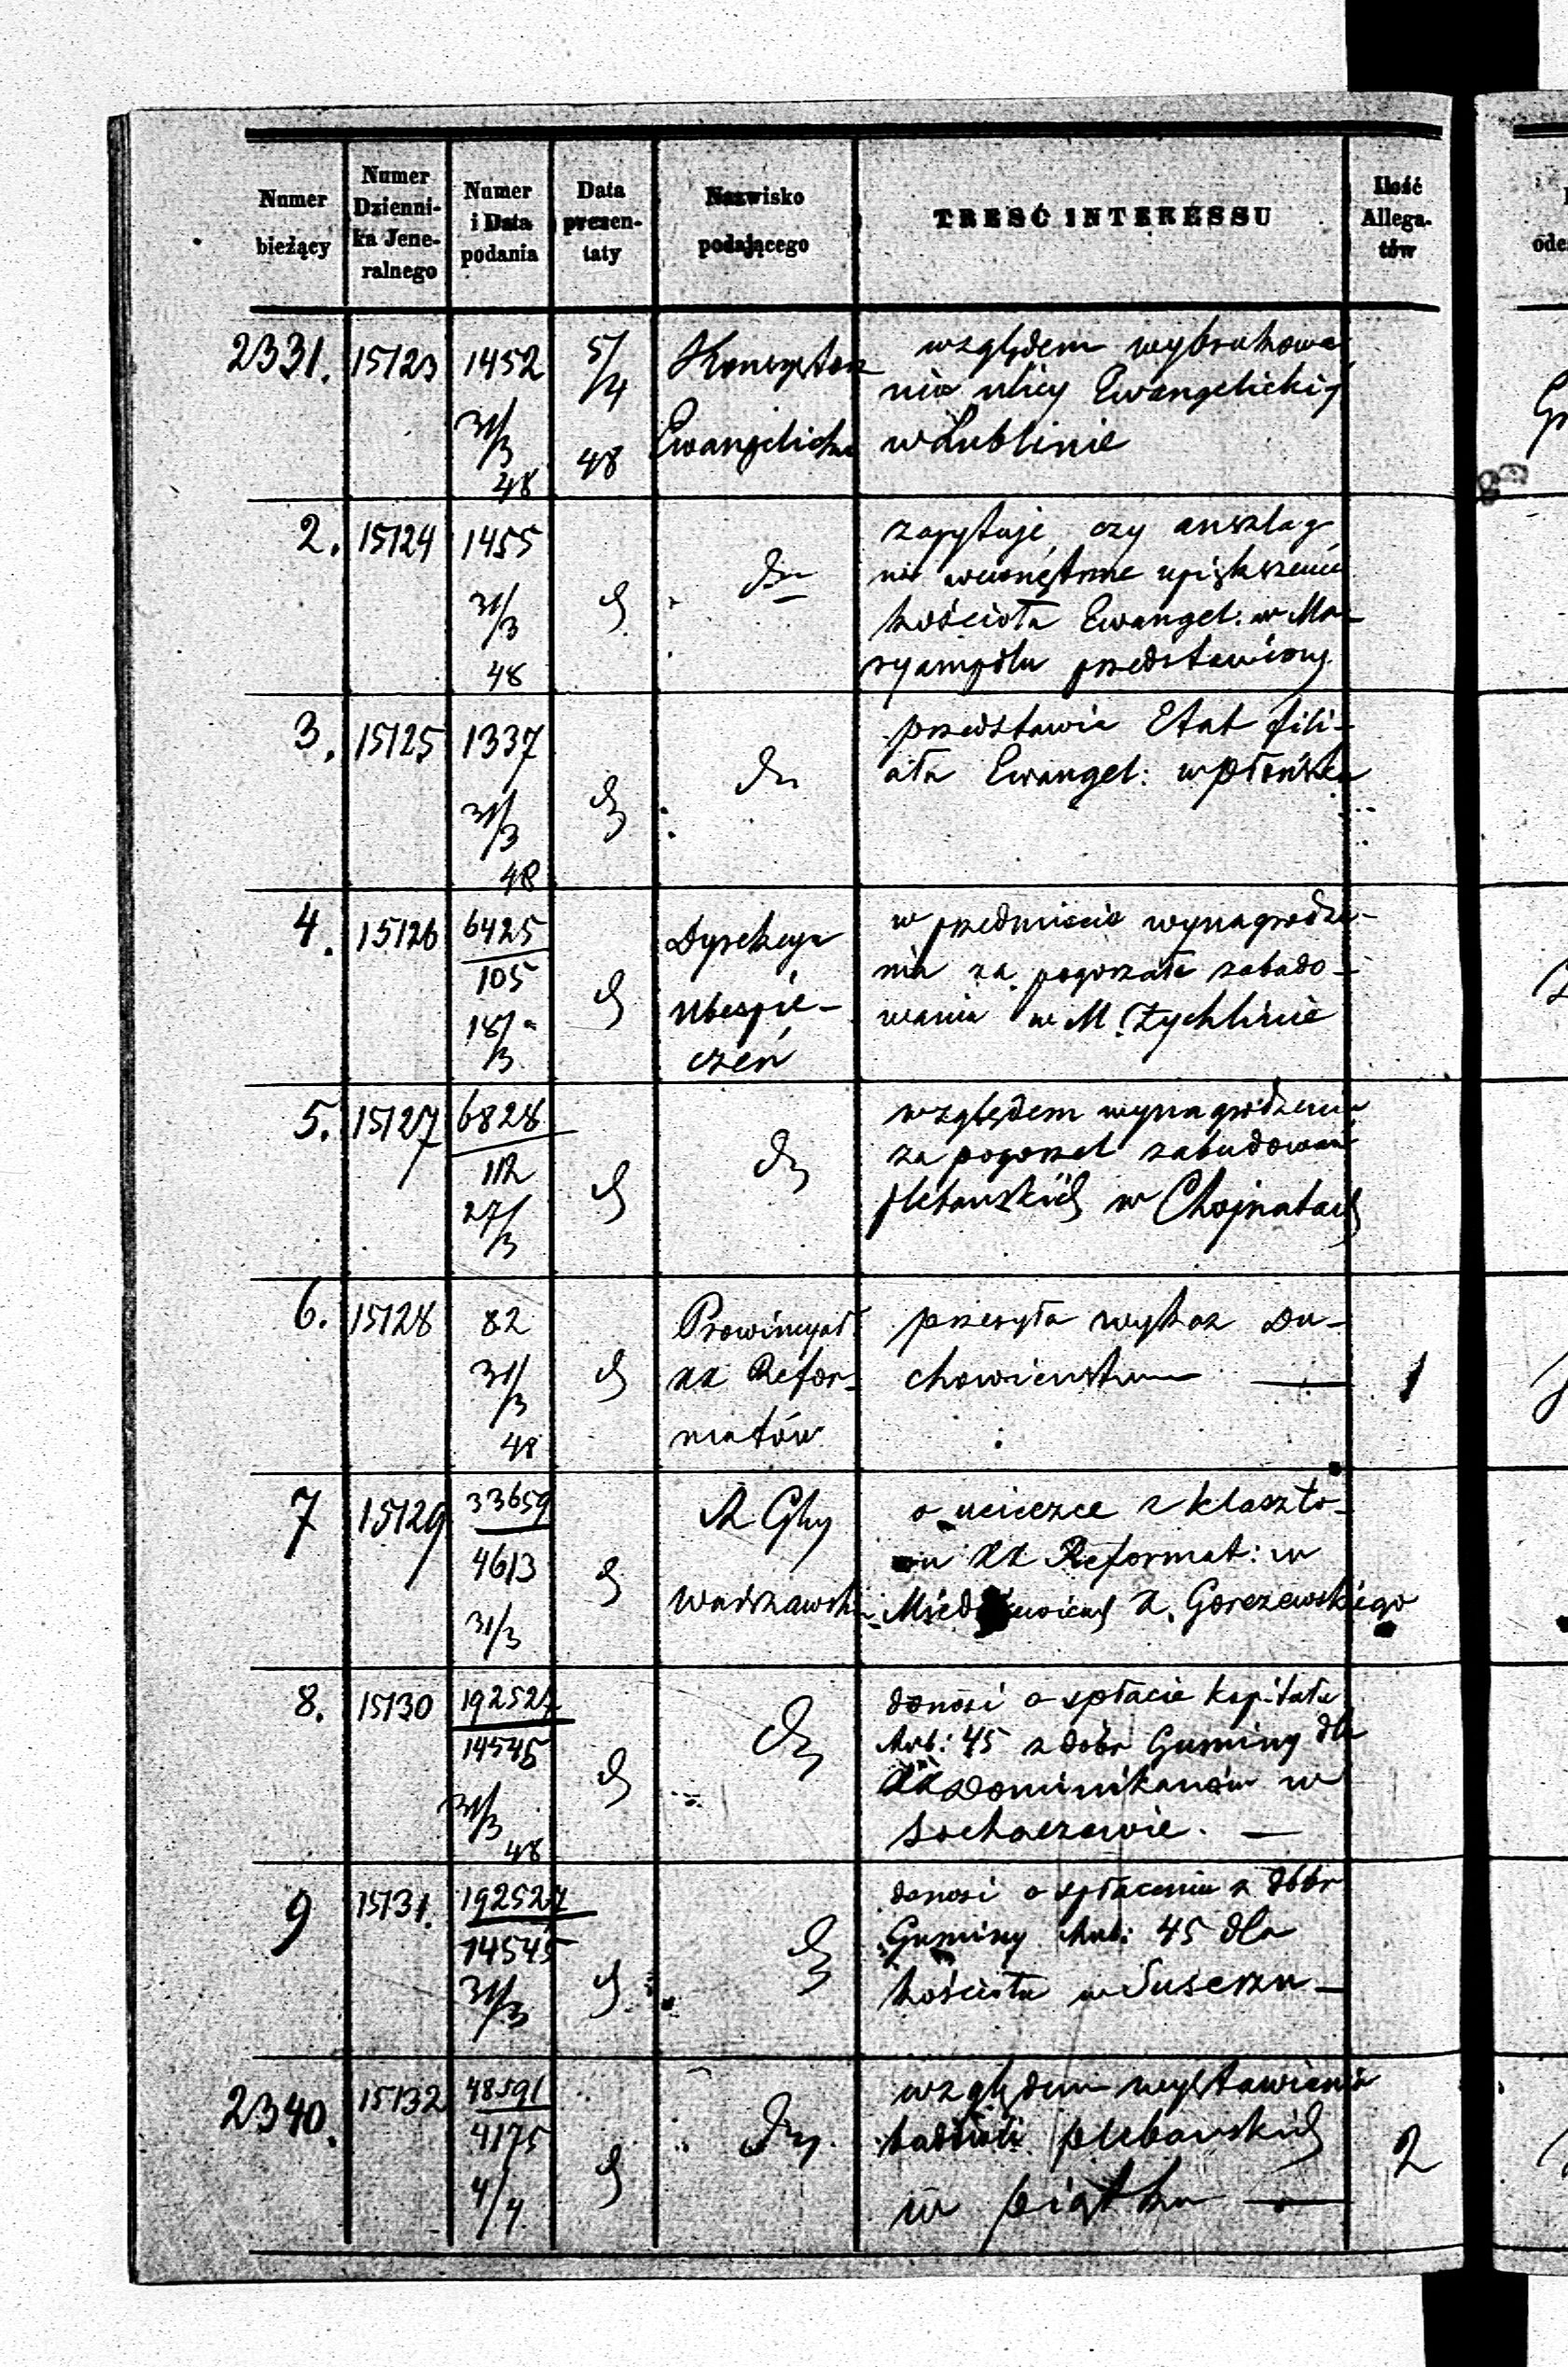 Numer bieżący
Numer Dzienni-ka Jene-ralnego
Numer i Data podania
Data prezen-taty
Nazwisko podającego
TREŚĆ INTERESSU
Ilość Allega-tów
2331. 15123 1452 31/3 48 5/4 48
Konsystorz
Ewangelicki
względem wybrukowa
nia ulicy Ewangelickiej
w Lublinie
2. 15124 1455 31/3 48
dto
zapytuje, czy anszlag
na wewnętrzne upiększenie
kościoła Ewangel: w Ma-
ryampolu przedstawiony
3. 15125 1337 31/3 48
przedstawia Etat fili-
ału Ewangel: w Płońsku
4. 15126 6425
105
18/3
Dyrekcya
Ubespie-
czeń
w przedmiocie wynagrodze-
nia za pogorzałe zabudo-
wania w M. Żychlinie
5. 15127 6828
112
27/3
względem wynagrodzenia
za pogorzel zabudowań
plebańskich w Chojnatach
6. 15128 82 31/3 48
Prowincyał
XX Refor-
matów
przesyła wykaz Du-
chowieństwa — 1
7 15129 33659
4613
31/3
R Gby
Warszawski
o ucieczce z klaszto-
ru XX Reformat: w
X. Gorczewskiego
8. 15130 192527
14545
31/3 48
donosi o spłacie kapitału
Rub: 45 z dóbr Guminy dla
XX Dominikanów w
Sochaczewie. —
9 15131. 192527
14545
31/3
donosi o spłaceniu z dóbr
Guminy Rub: 45 dla
kościoła w Suserzu —
2340. 15132 48591
4175
4/4
względem wystawienia
plebańskich
w Piątku — 2